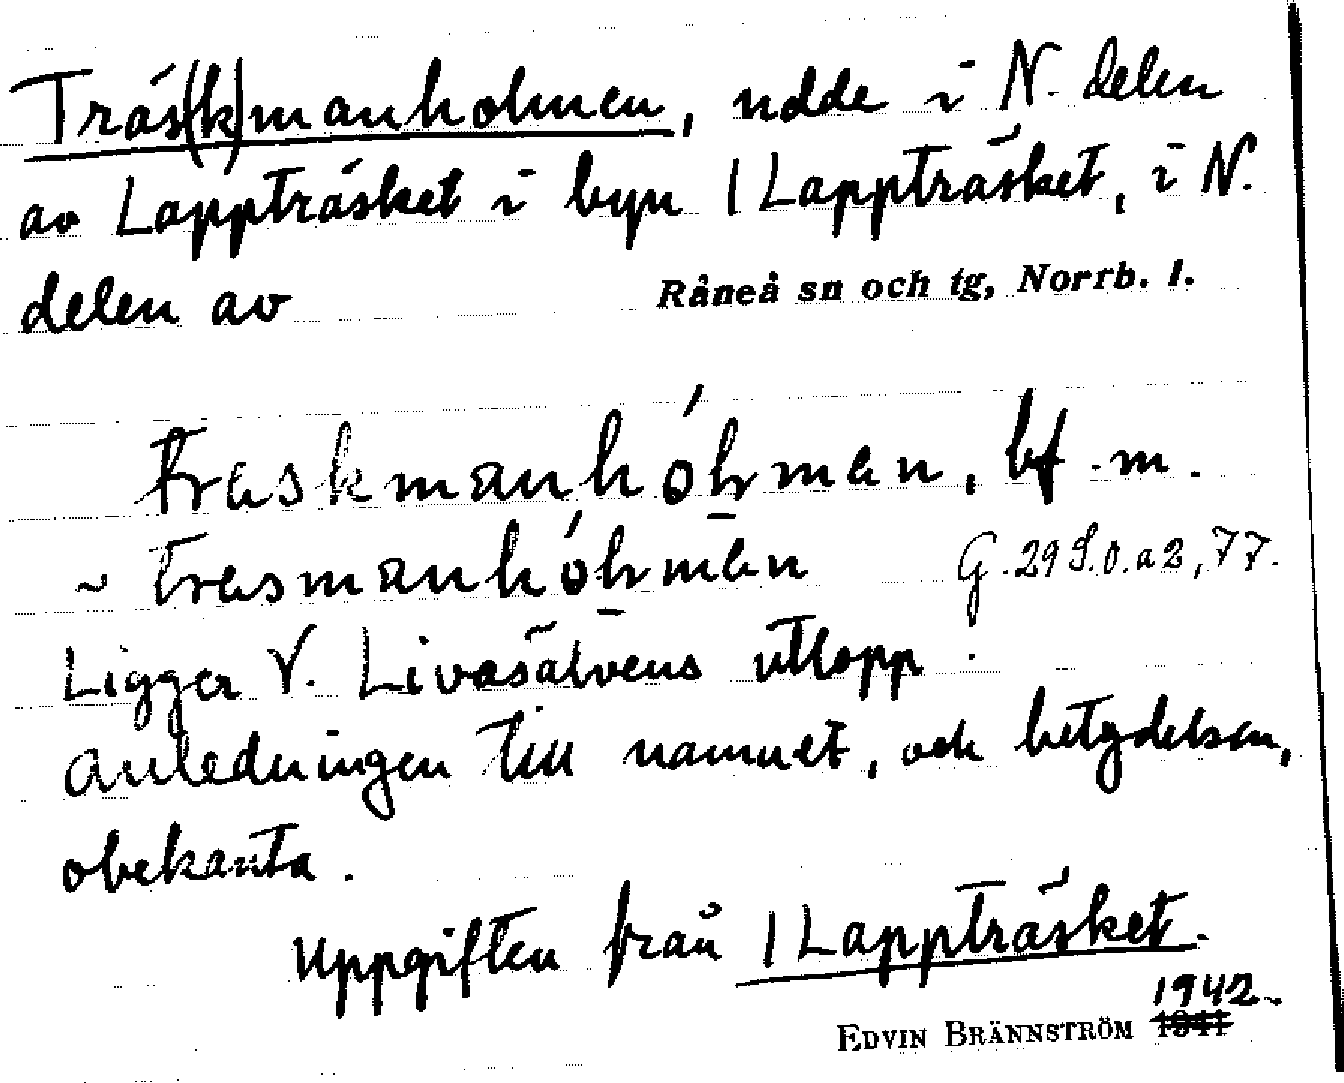 Träs(k)manholmen, udde i N. delen
av Lappträsket i byn 1 Lappträsket, i N.
delen av Råneå sn och tg, Norrb. l.
traskmanhólmen, bf. m.
~ trasmanhólmen G. 29 S.O. a 2, 77.
Ligger V. Livasälvens utlopp.
Anledningen till namnet, och betydelsen,
obekanta.
Uppgiften från 1 Lappträsket.
1942.
EDVIN BRÄNNSTRÖM 1941